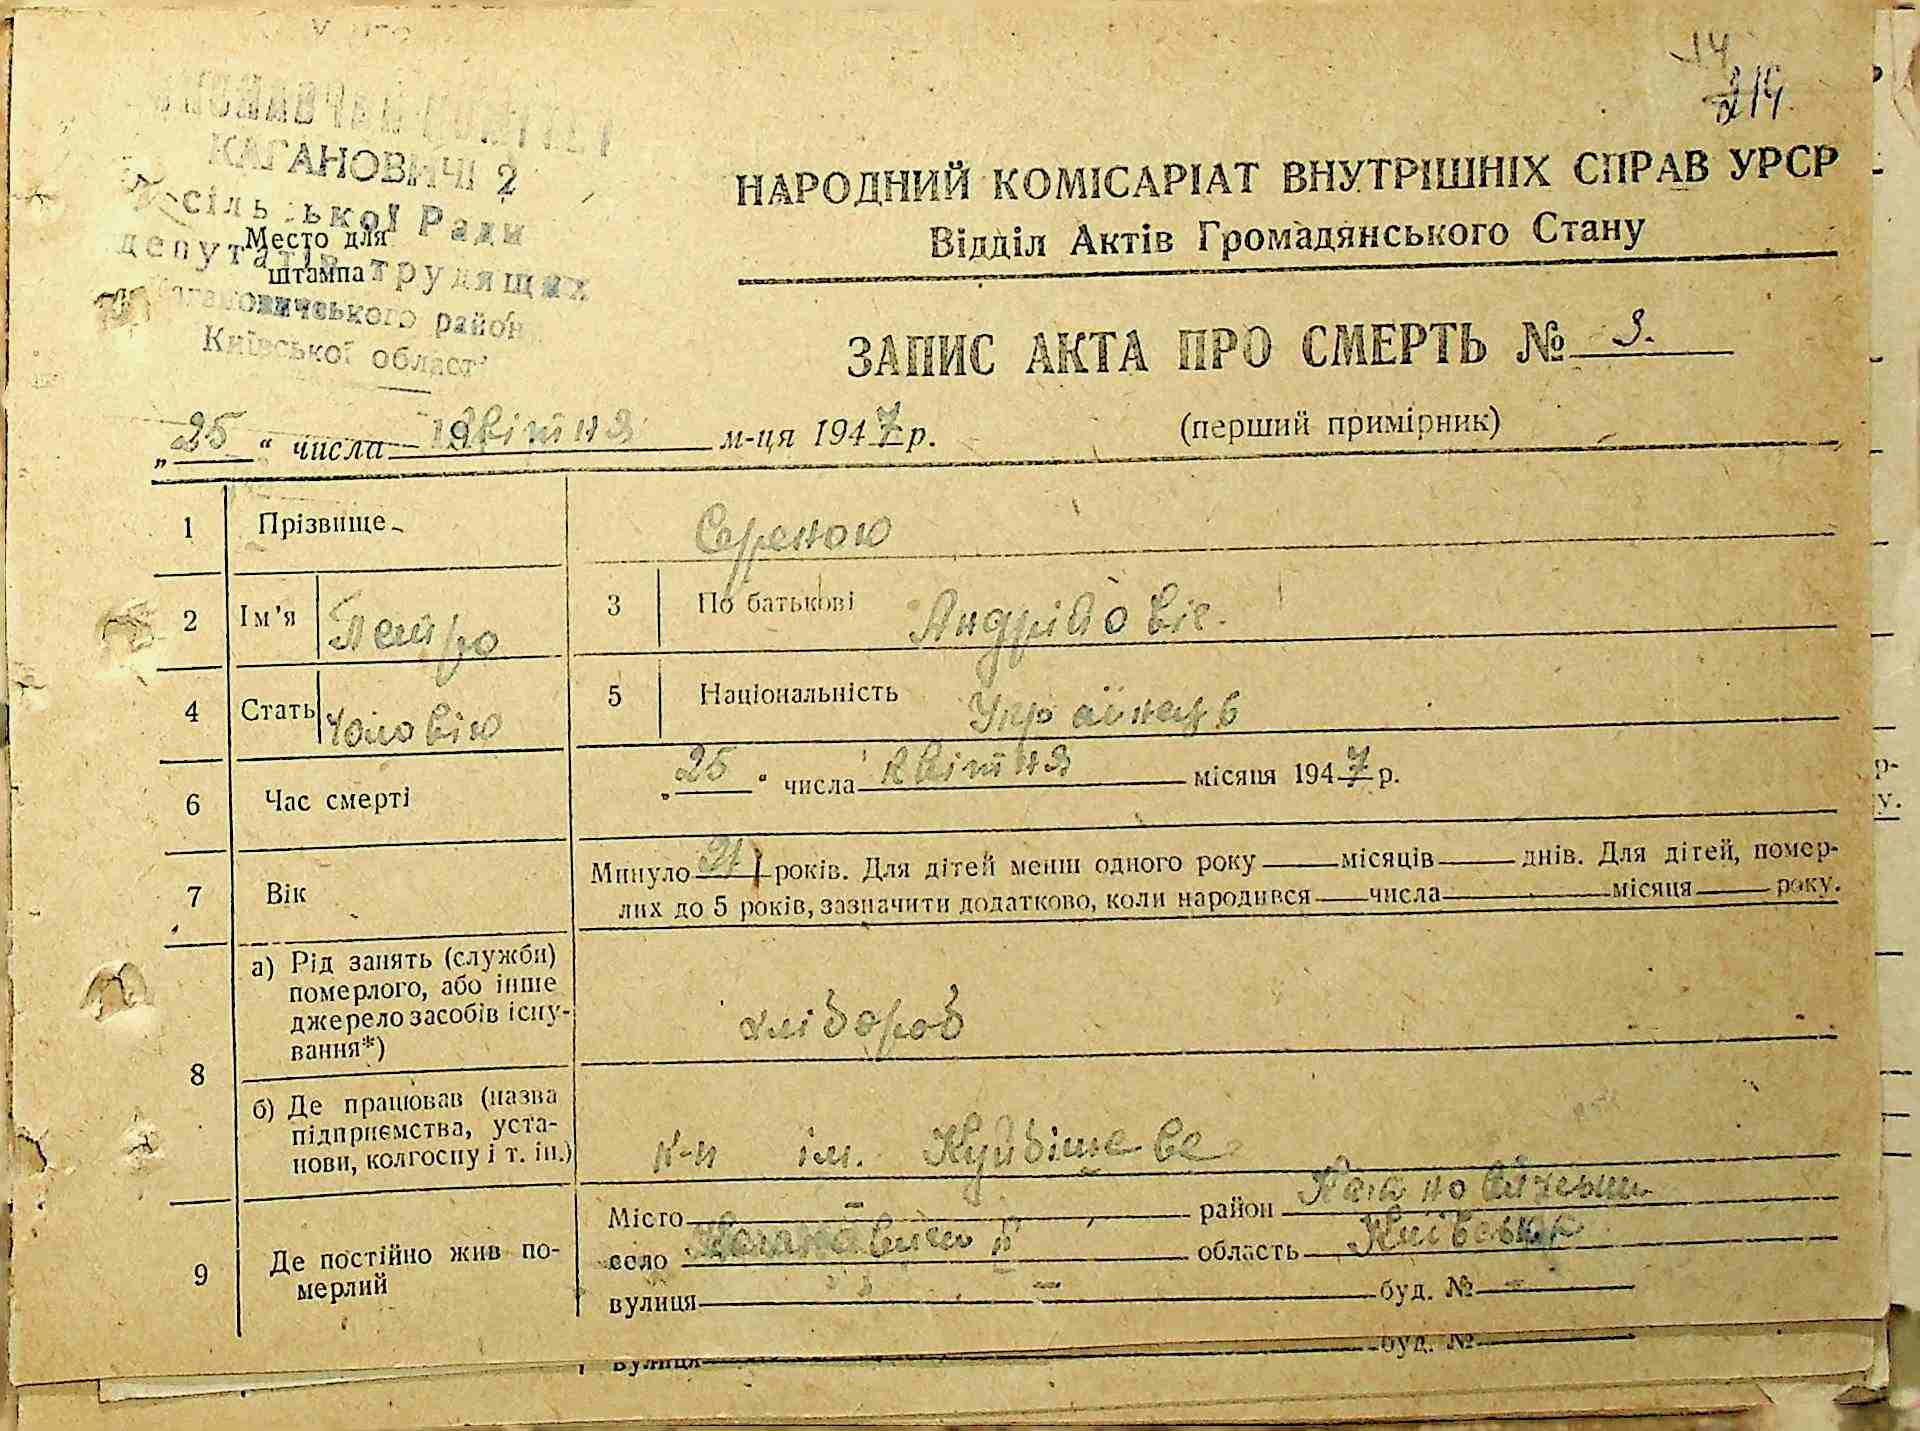 14
219
ВИКОНАВЧИЙ КОМІТЕТ
КАГАНОВИЧІ 2
сільської Ради
депутатів трудящих
Кагановичського району
Київської області
Место для
штампа
НАРОДНИЙ КОМІСАРІАТ ВНУТРІШНІХ СПРАВ УРСР
Відділ Актів Громадянського Стану
ЗАПИС АКТА ПРО СМЕРТЬ № 3.
„25“ числа квітня м-ця 1947 р.
(перший примірник)
1 Прізвище
2 Ім'я Петро 3 По батькові Андрійовіч.
4 Стать Чоловік 5 Національність Українець
6 Час смерті „25“ числа квітня місяця 1947 р.
7 Вік Минуло років. Для дітей менш одного року місяців днів. Для дітей, помер-
лих до 5 років, зазначити додатково, коли народився числа місяця року.
8 а) Рід занять (служби)
померлого, або інше
джерело засобів існу-
вання*)
хлібороб
б) Де працював (назва
підприємства, уста-
нови, колгоспу і т. ін.)
к-п ім. Куйбішева
9 Де постійно жив по-
мерлий
Місто — район
село Кагановичі ІІ область Київська
вулиця — буд. № —
вулиця буд. №